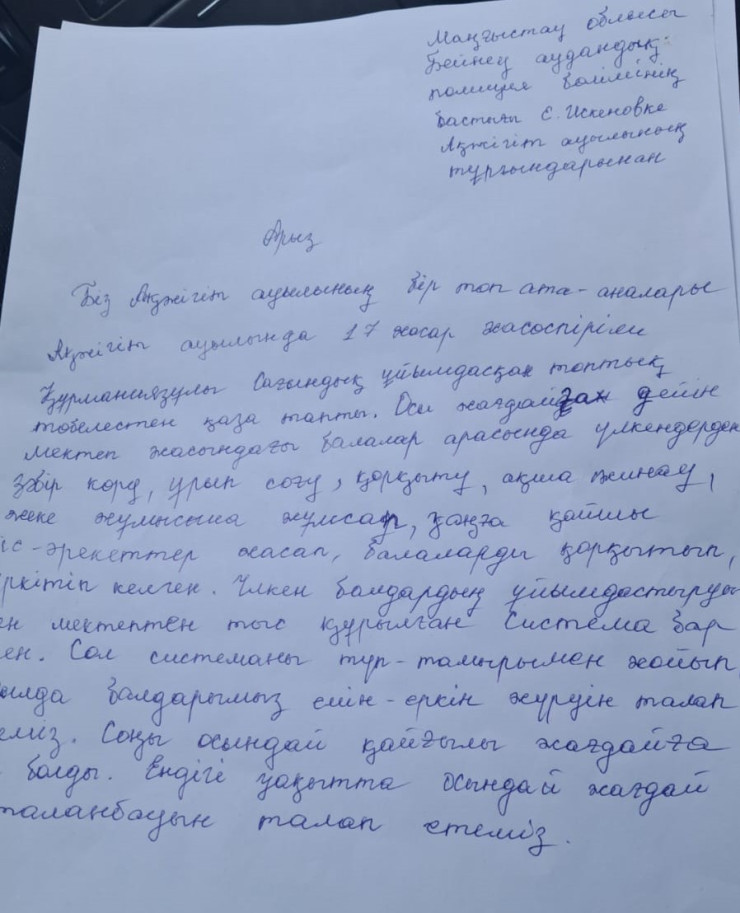 Маңғыстау облысы
Бейнеу аудандық
полиция бөлімінің
бастығы Е. Искеновке
Ақжігіт ауылының
тұрғындарынан
Арыз
Біз Ақжігіт ауылының бір топ ата-аналары
Ақжігіт ауылында 17 жасар жасөспірім
Құрманиязұлы Сағындық ұйымдасқан топтық
төбелестен қаза тапты. Осы жағдайған дейін
мектеп жасындағы балалар арасында үлкендерден
зәбір көру, ұрып соғу, қорқыту, ақша жинау,
жеке жұмысына жұмсап, заңға қайшы
іс-әрекеттер жасап, балаларды қорқытып,
үркітіп келген. Үлкен балдардың ұйымдастыруы
ен мектептен тыс құрылған система бар
ен. Сол системаны түп-тамырымен жойып
ылда балдарымыз еиін-еркін жүруін талап
еміз. Соңы осындай қайғылы жағдайға
болды. Ендігі уақытта осындай жағдай
таланбауын талап етеміз.